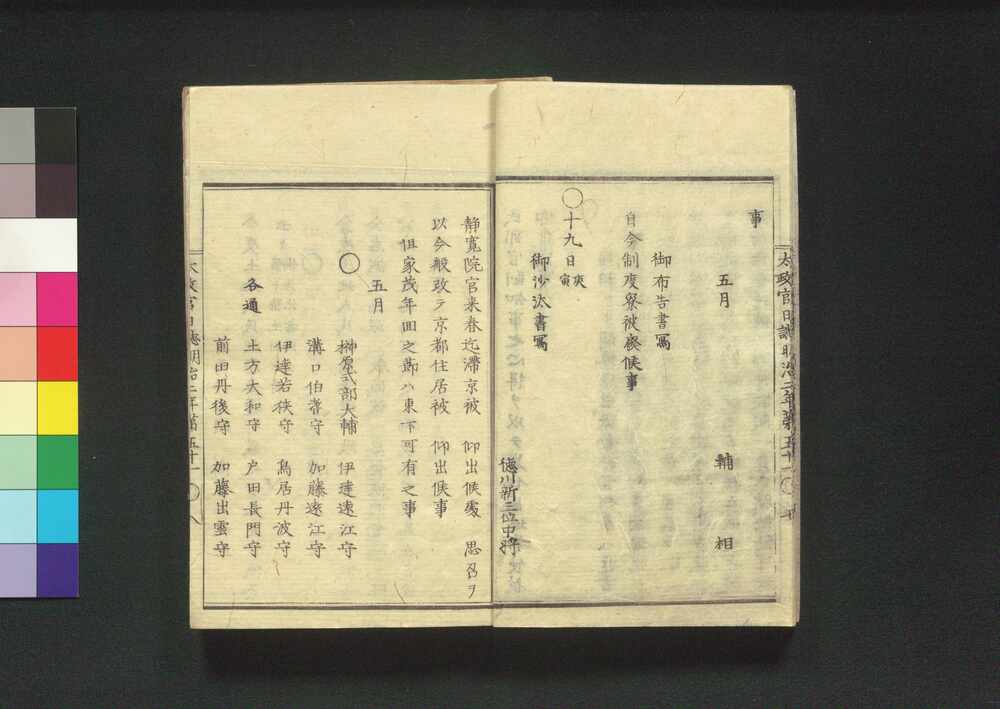 太政官日誌明治二年第五十一
事
五月
輔相
御布告書寫
自今制度寮被廢候事
○十九日庚寅
御沙汰書寫
徳川新三位中将
静寛院宮来春迄滞京被 仰出候處 思召ヲ
以今般改テ京都住居被 仰出候事
但家茂年回之節ハ東下可有之事
五月
○
榊原式部大輔 伊達遠江守
溝口伯耆守 加藤遠江守
伊達若狭守 鳥居丹波守
各通
土方大和守 戸田長門守
前田丹後守 加藤出雲守
太政官日誌明治二年第五十一 ○ 八